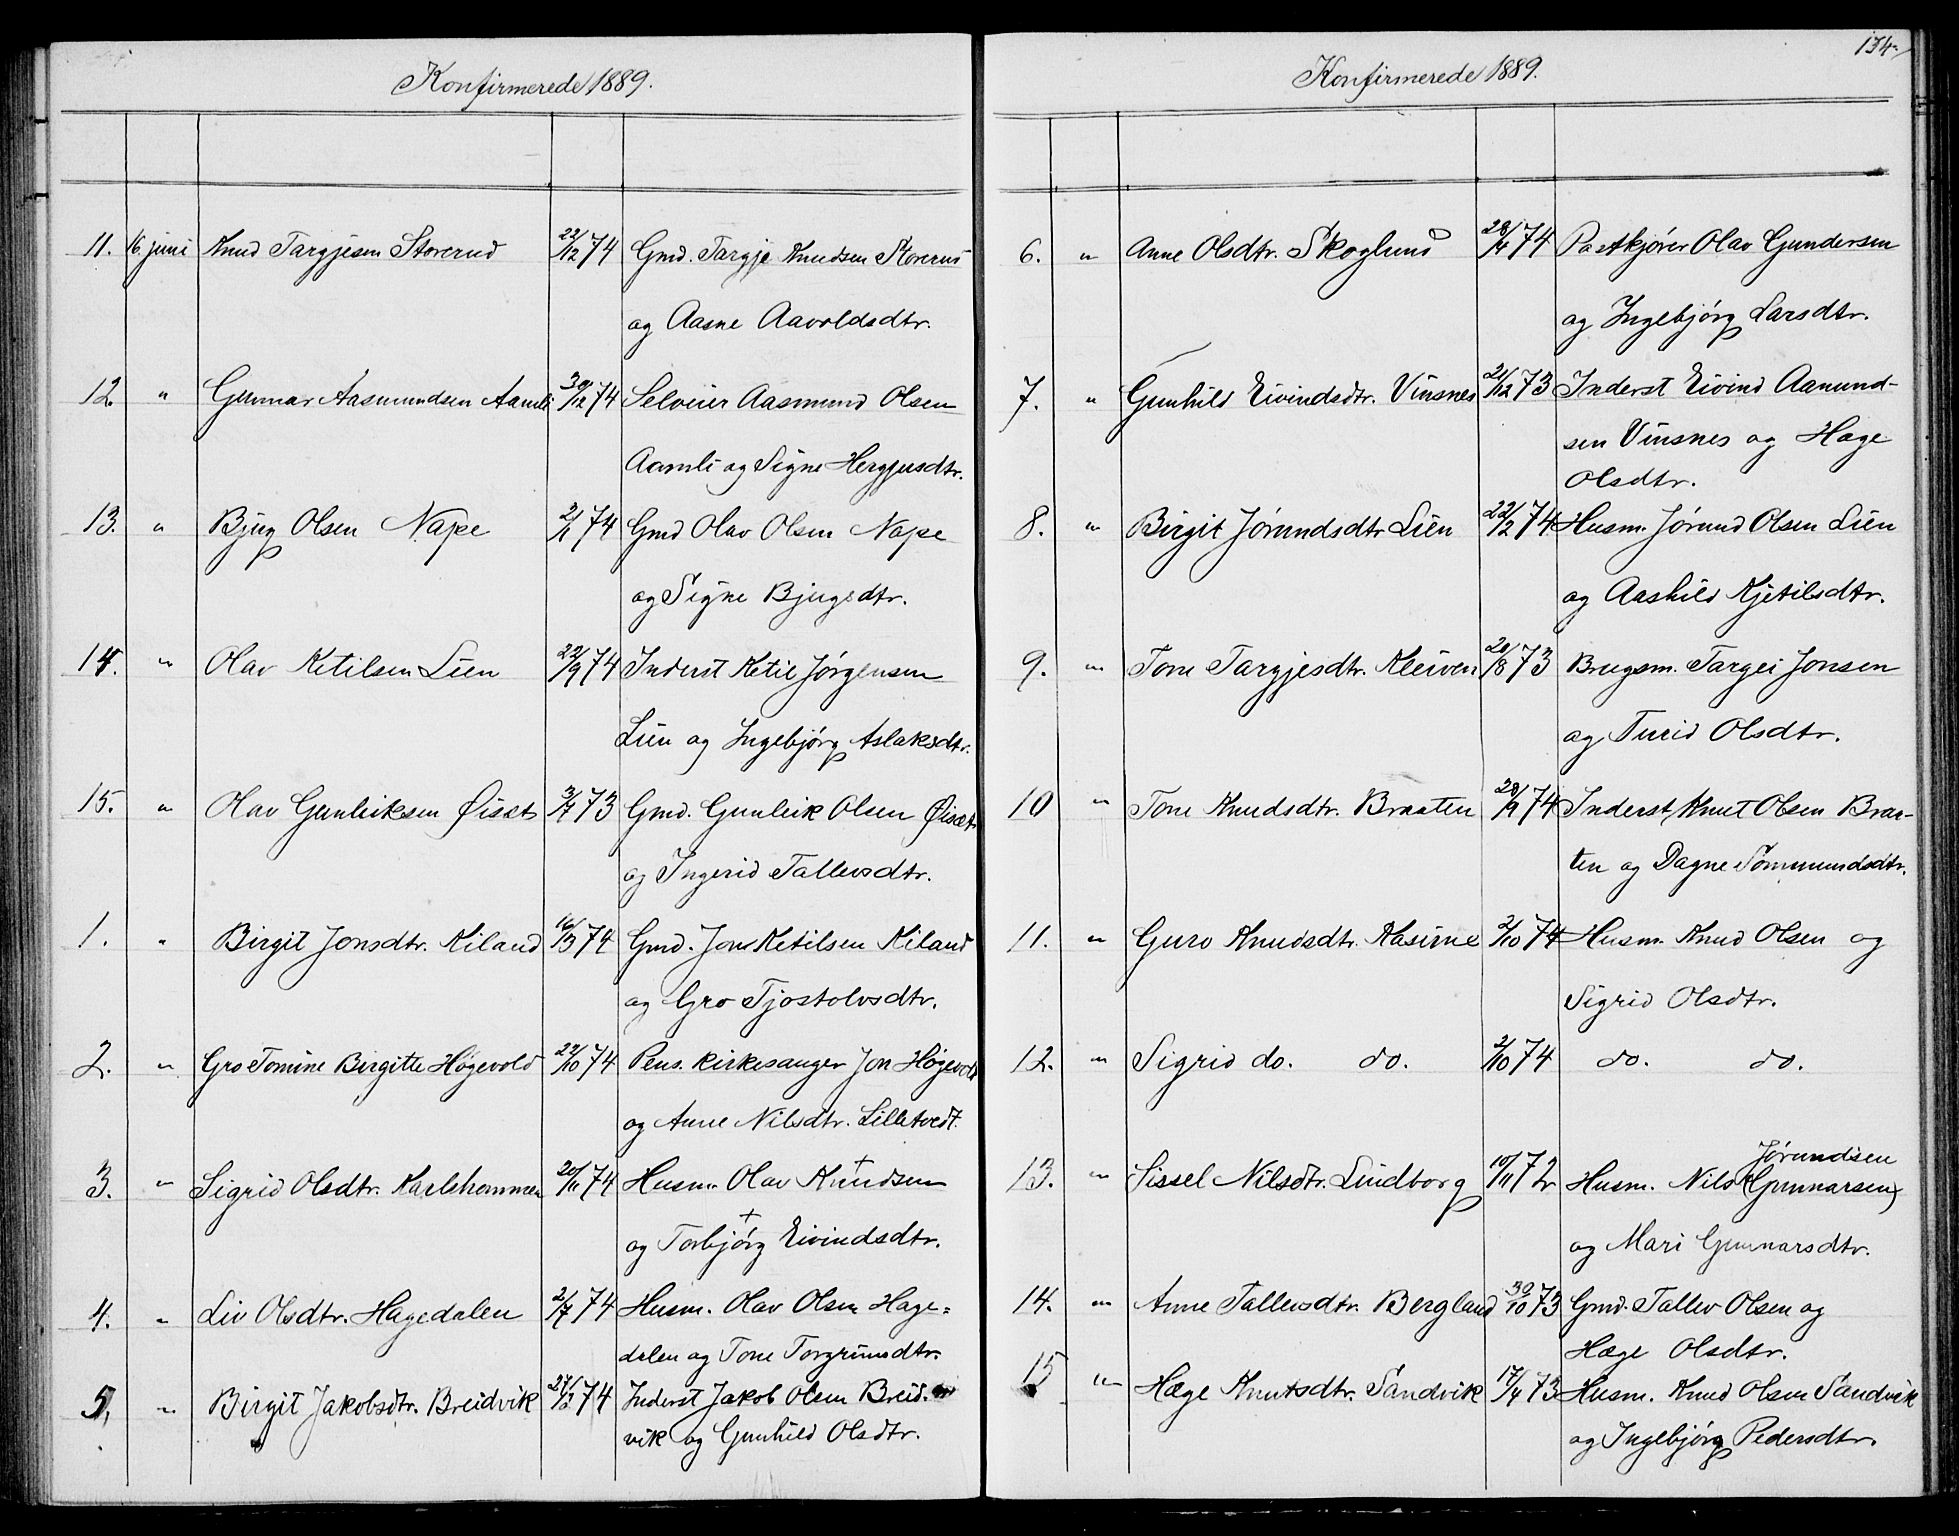 Konfirmerede 1889.
11. 16 juni Knud Targjesen Storerud 22/12 74 Gmd. Targje Knudsen Storerud
og Aasne Aavoldsdtr.
12. " Gunnar Aasmundsen Aamli 30/12 74 Selveier Aasmund Olsen
Aamli og Signe Hergjusdtr.
13. " Bjug Olsen Nape 2/1 74 Gmd Olav Olsen Nape
og Signe Bjugsdtr.
14. " Olav Ketilsen Lien 22/9 74 Inderst Ketil Jørgensen
Lien og Ingebjørg Aslaksdtr.
15. " Olav Gunleiksen Øisæt 3/7 73 Gmd. Gunleik Olsen Øisæt
og Ingerid Tallevsdtr.
1. " Birgit Jonsdtr. Kiland 16/3 74 Gmd. Jon Ketilsen Kiland
og Gro Tjostolvsdtr.
2. " Gro Tomine Birgitte Høgevold 22/10 74 Pens. kirkesanger Jon Høgevold
og Anne Nilsdtr. Lilletvedt.
3. " Sigrid Olsdtr. Karlshommen 20/11 74 Husm. Olav Knudsen
og Torbjørg Eivindsdtr.
4. " Liv Olsdtr. Hagedalen 2/7 74 Husm. Olav Olsen Hage=
dalen og Tone Torgrimsdtr.
5. " Birgit Jakobsdtr. Breidvik 27/3 74 Inderst Jakob Olsen Breid-
vik og Gunhild Olsdtr.
134.
Konfirmerede 1889.
6. " Anne Olsdtr. Skoglund 28/4 74 Postkjører Olav Gundersen
og Ingebjørg Larsdtr.
7. " Gunhild Eivindsdtr. Vinsnes 21/12 73 Inderst Eivind Aanund-
sen Vinsnes og Hæge
Olsdtr.
8. " Birgit Jørundsdtr Lien 22/2 74 Husm. Jørund Olsen Lien
og Aashild Kjetilsdtr.
9. " Tone Targjesdtr. Kleiven 20/8 73 Brugsm. Targei Jonsen
og Turid Olsdtr.
10 " Tone Knudsdtr. Braaten 20/9 74 Inderst Knut Olsen Braa-
ten og Dagne Tommundsdtr.
11. " Guro Knudsdtr. Kasine 2/10 74 Husm. Knud Olsen og
Sigrid Olsdtr.
12. " Sigrid do. do. 2/10 74 do. do.
Jørundsen
13. " Sissel Nilsdtr. Lindborg 10/11 72 Husm. Nils (Gunnarsen)
og Mari Gunnarsdtr.
14. " Anne Tallevsdtr. Bergland 30/10 73 Gmd. Tallev Olsen og
Hæge Olsdtr.
15 " Hæge Knutsdtr. Sandvik 17/4 73 Husm. Knud Olsen Sandvik
og Ingebjørg Pedersdtr.